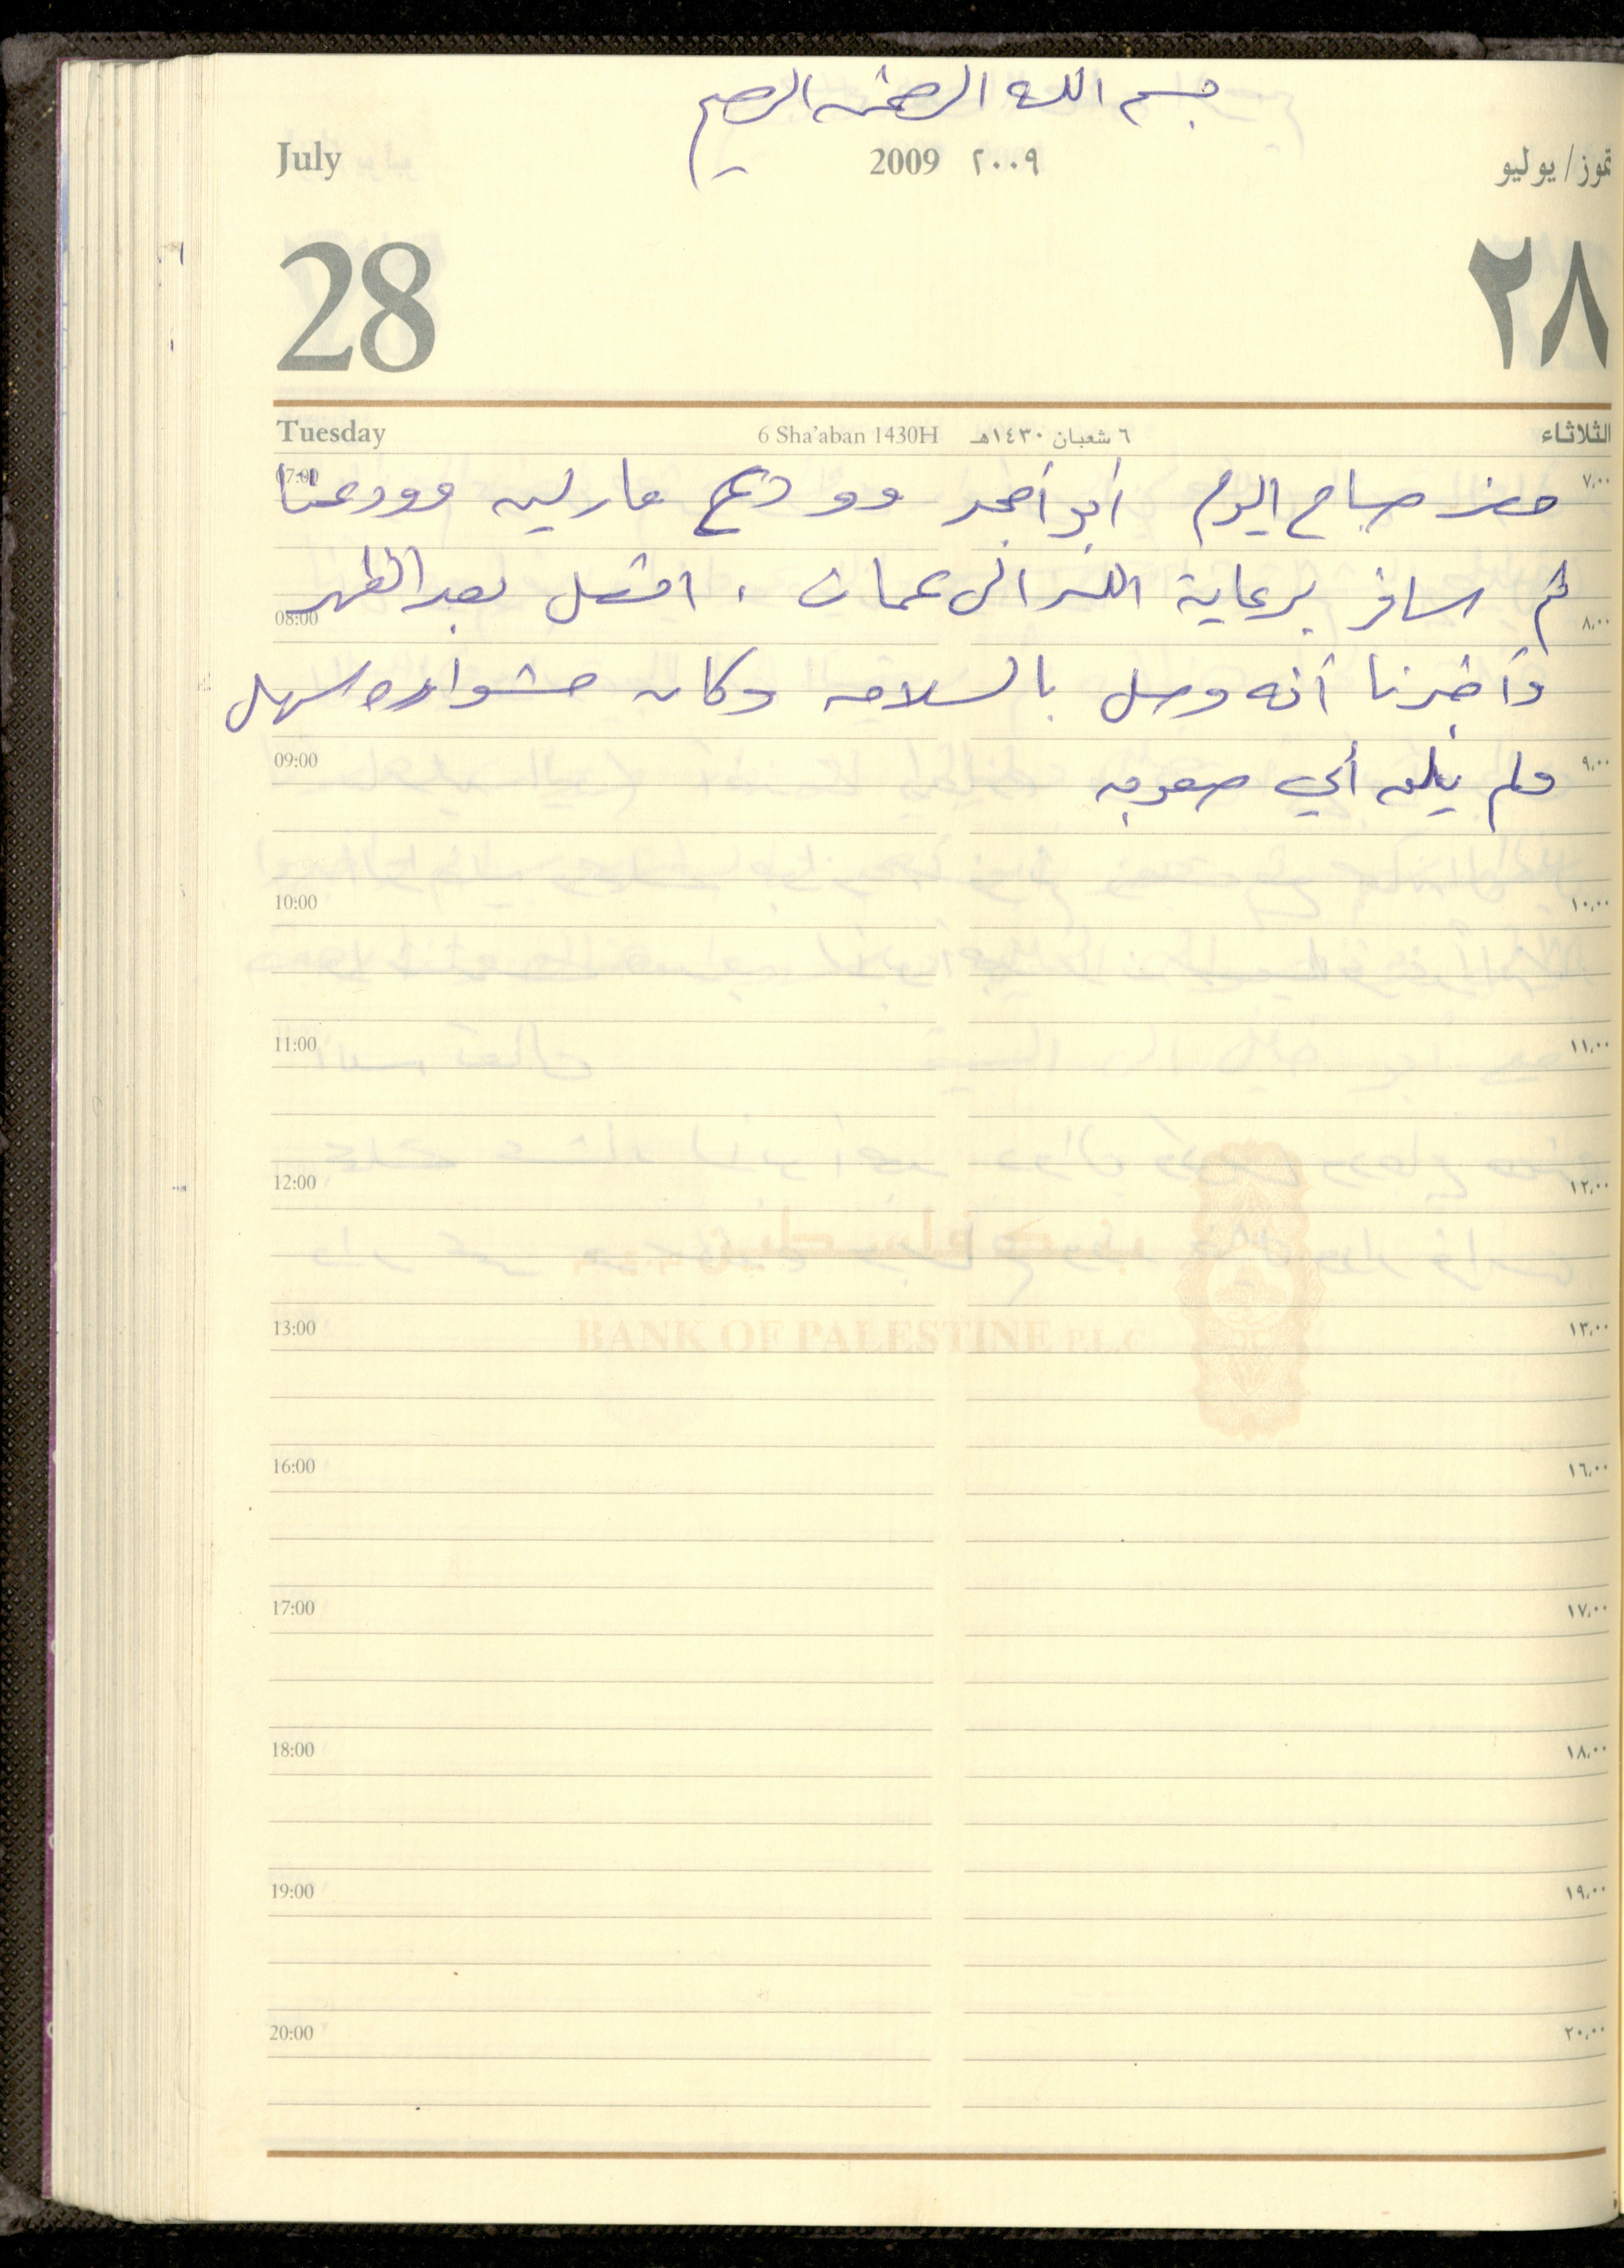 بسم الله الرحمن الرحيم
July 2009 ٢٠٠٩ تموز/يوليو
28 ٢٨
Tuesday 6 Sha'aban 1430H ٦ شعبان ١٤٣٠هـ الثلاثاء
07:00 ٧,٠٠
حضر صباح اليوم أبو أمجد وودع مارلين وودعنا
ثم سافر برعاية الله الى عمان ، اتصل بعد الظهر
08:00 ٨,٠٠
وأخبرنا أنه وصل بالسلامه وكان مشواره سهل
09:00 ٩,٠٠
ولم يلق أي صعوبه
10:00 ١٠,٠٠
11:00 ١١,٠٠
12:00 ١٢,٠٠
13:00 ١٣,٠٠
BANK OF PALESTINE P.L.C.
16:00 ١٦,٠٠
17:00 ١٧,٠٠
18:00 ١٨,٠٠
19:00 ١٩,٠٠
20:00 ٢٠,٠٠